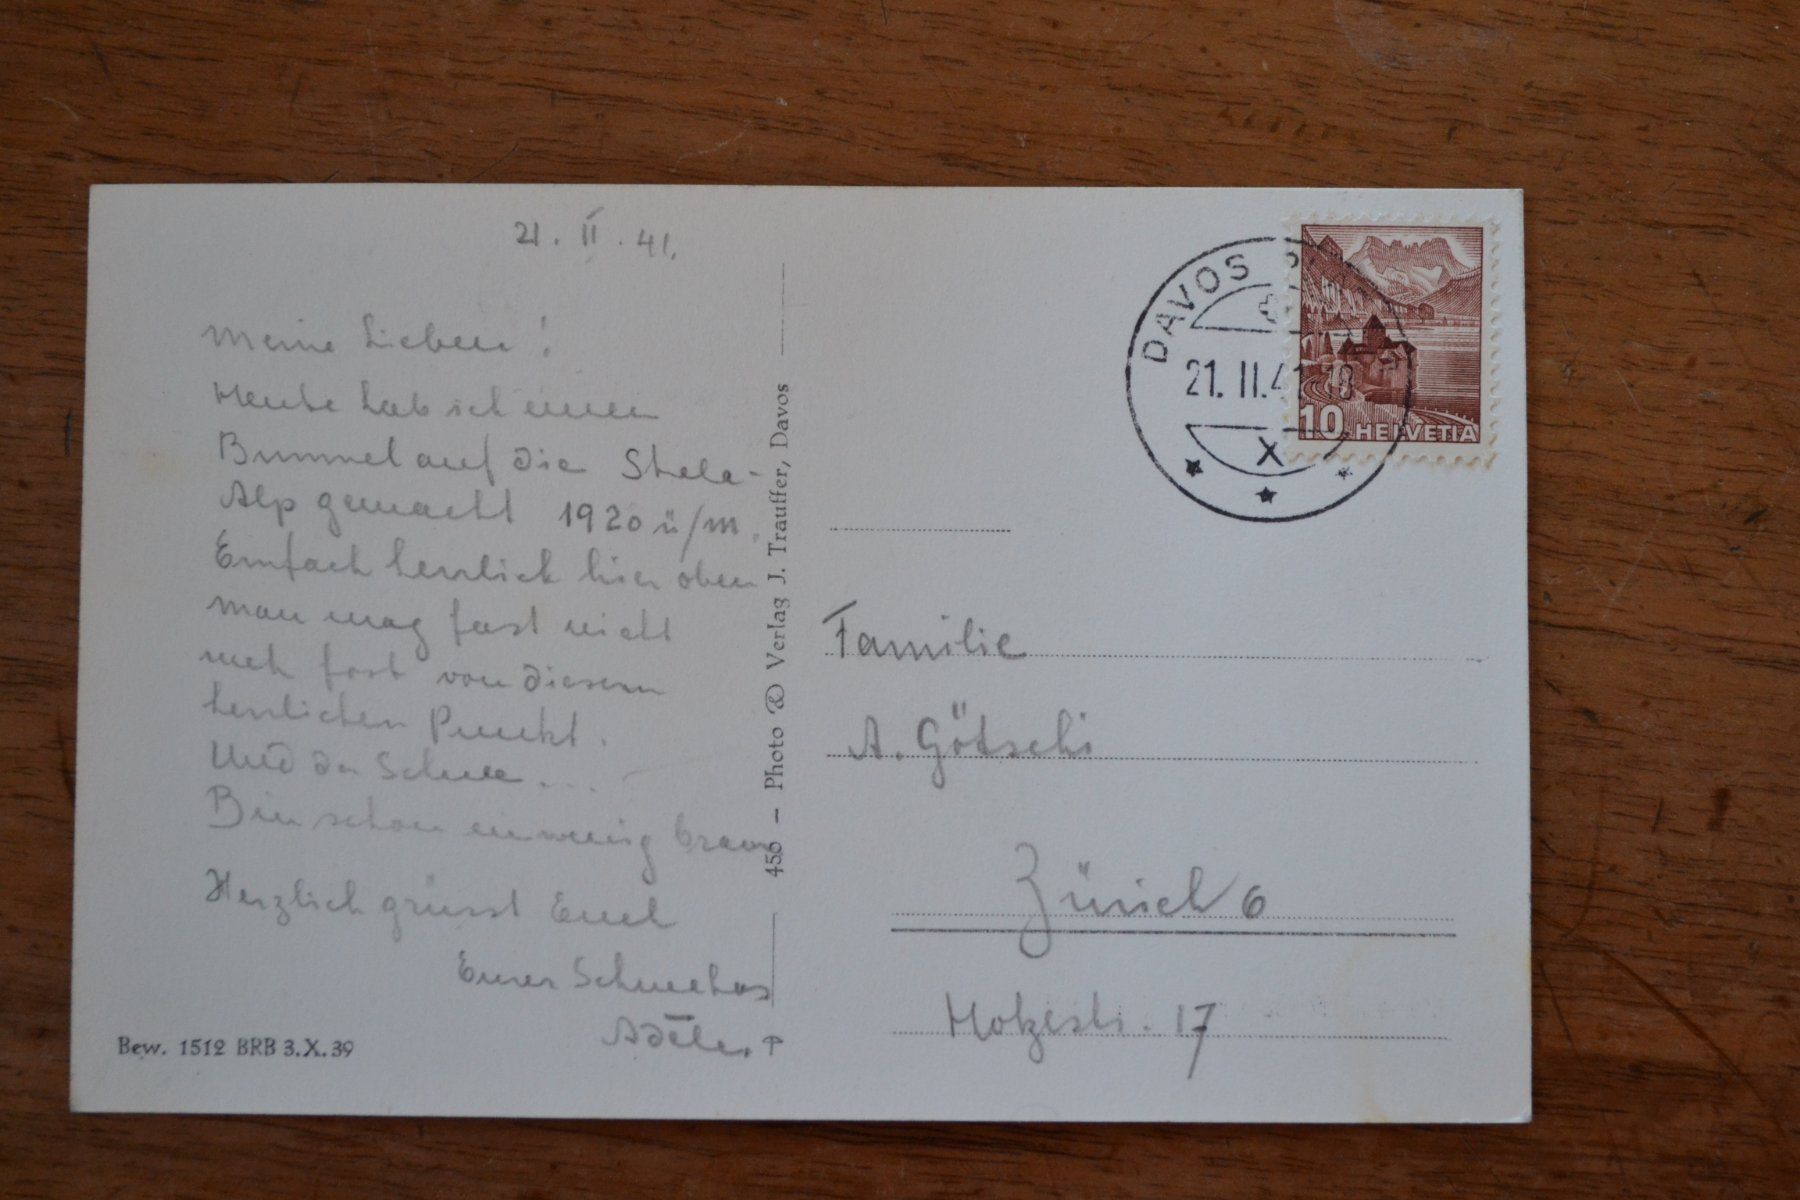 21. II. 41.
Meine Lieben!
Heute hab ich einen
Bummel auf die Strela-
Alp gemacht 1920 ü/m.
Einfach herrlich hier oben
man mag fast nicht
meh fort von diesem
herrlichen Punkt.
Und der Schnee...
Bin schon ein wenig braun
Herzlich grüsst Euch
Eurer Schneehas
Adèle.
Bew. 1512 BRB 3.X.39
456 – Photo & Verlag J. Trauffer, Davos
DAVOS
21. II. 41 18
X
10 HELVETIA
Familie
A. Götschi
Zürich 6
Hotzestr. 17